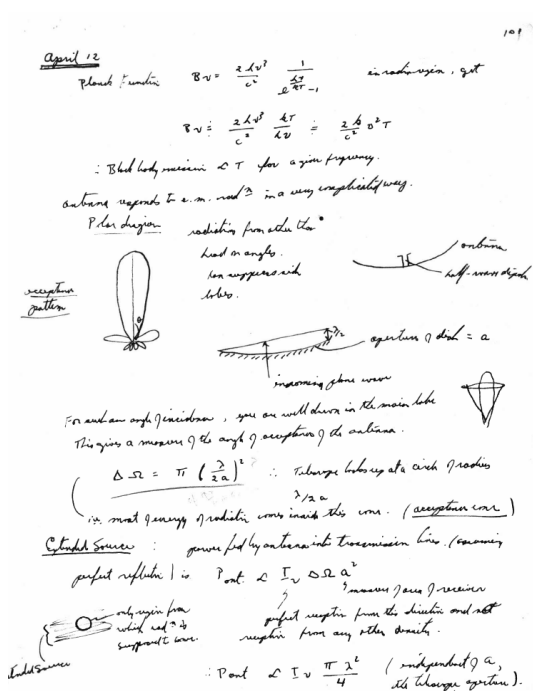 101
April 12
Planck Function Bν = 2hν³/c² 1/(e^(hν/kT) -1) in radio region, get
Bν ≐ 2hν³/c² kT/hν ≐ 2k/c² ν² T
∴ Black body emission ∝ T for a given frequency.
antenna responds to e.m. radⁿ in a very complicated way.
Polar diagram
radiation from other than
head on angles.
can suppress side
lobes.
antenna
half-wave dipole
acceptance
pattern
θ
λ/2
aperture of dish = a
incoming plane wave
For such an angle of incidence, you are well down in the main lobe
This gives a measure of the angle of acceptance of the antenna.
ΔΩ = π (λ/2a)² ∴ Telescope looks up at a circle of radius
λ/2a
i.e. most of energy of radiation comes inside this cone. (acceptance cone)
Extended Source : power fed by antenna into transmission lines. (assuming
perfect reflection) is P ant. ∝ Iν ΔΩ a²
measure of area of receiver
perfect reception from this direction and not
reception from any other density.
only region from
which radⁿ is
supposed to come.
Extended Source
∴ P ant ∝ Iν πλ²/4 (independent of a,
the telescope aperture).